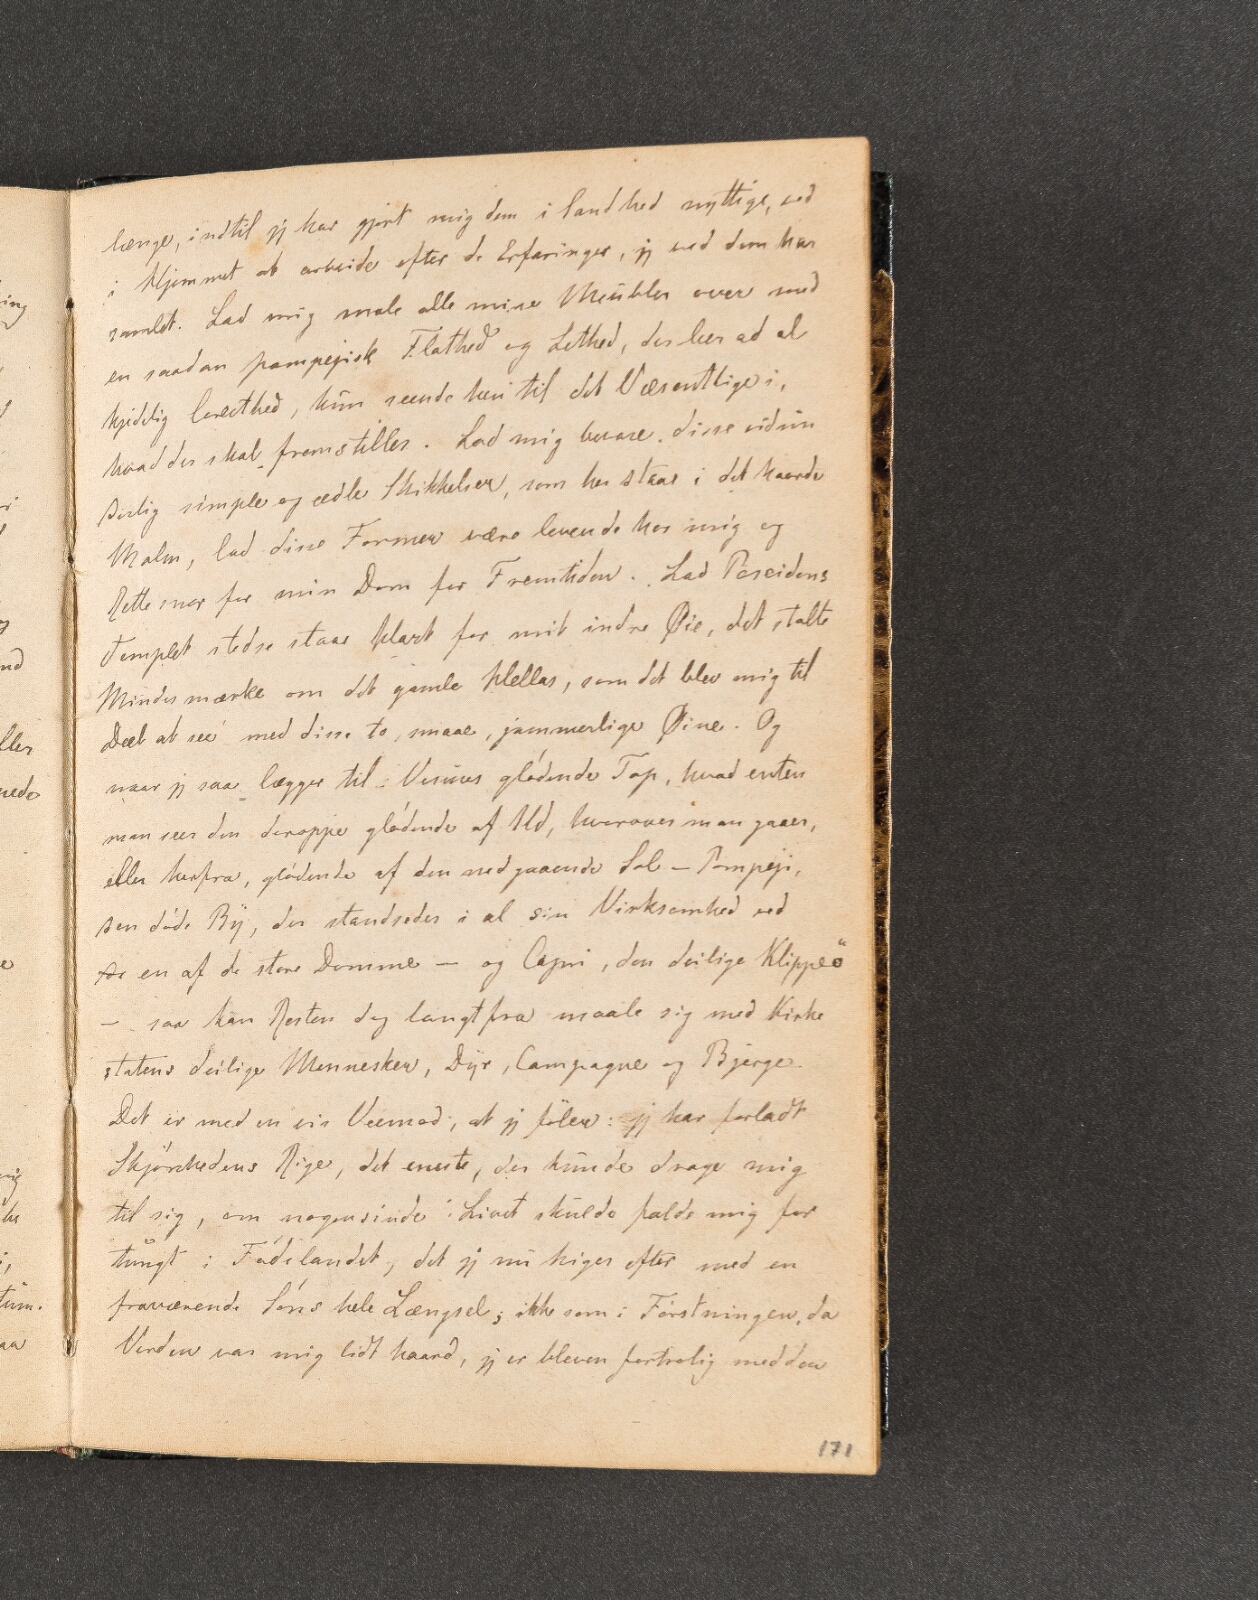 længe, indtil jeg har gjort mig dem i Sandhed nyttige, ved
i Hjemmet at arbeide efter de Erfaringer, jeg ved dem har
samlet. Lad mig male alle mine Meubler over med
en saadan pompejisk Flathed og Lethed, der leer ad al
kjedelig Correcthed, kun seende hen til det Væsentlige i,
hvad der skal fremstilles. Lad mig bevare disse vidun
derlig simple og ædle Skikkelser, som her staae i det haarde
Malm, lad disse Former være levende hos mig og
Rettesnor for min Dom for Fremtiden. Lad Poseidons
Templet stedse staae klart for mit indre Øie, det stolte
Mindesmærke om det gamle Hellas, som det blev mig til
Deel at see med disse to, smaae, jammerlige Øine. Og
naar jeg saa lægger til: Vesuvs glödende Top, hvad enten
man seer den deroppe glödende af Ild, hvorover man gaaer,
eller herfra, glödende af den nedgaaende Sol – Pompeji,
den döde By, der standsedes i al sin Virksomhed ved
en af de store Domme – og Capri, den deilige Klippeö
– saa kan Resten dog langtfra maale sig med Kirke
statens deilige Mennesker, Dyr, Campagne og Bjerge.
Det er med en vis Veemod, at jeg föler: jeg har forladt
Skjönhedens Rige, det eneste, der kunde drage mig
til sig, om nogensinde Livet skulde falde mig for
tungt i Födelandet, det jeg nu higer efter med en
fraværende Söns hele Længsel; ikke som i Förstningen, da
Verden var mig lidt haard, jeg er bleven fortrolig med den
171
ing
nd
ller
nede
e
tum.
aa